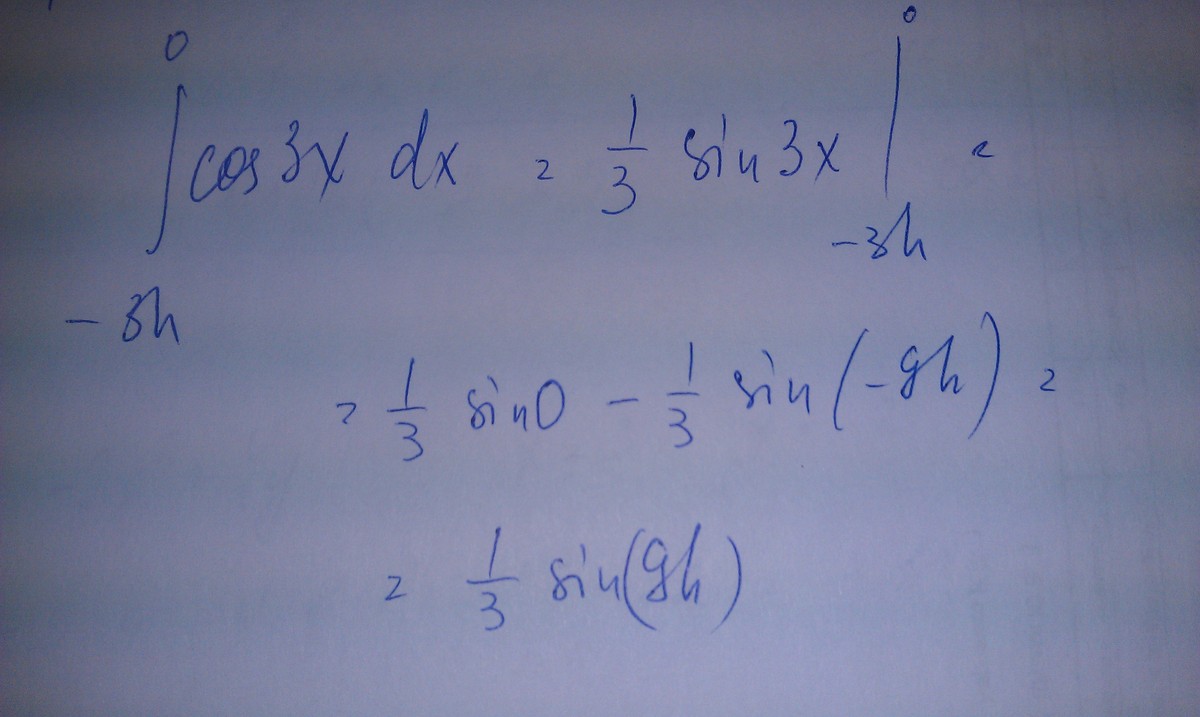 ∫_{-3h}^{0} cos3x dx = 1/3 sin3x |_{-3h}^{0} =
= 1/3 sin0 - 1/3 sin(-9h) =
= 1/3 sin(9h)